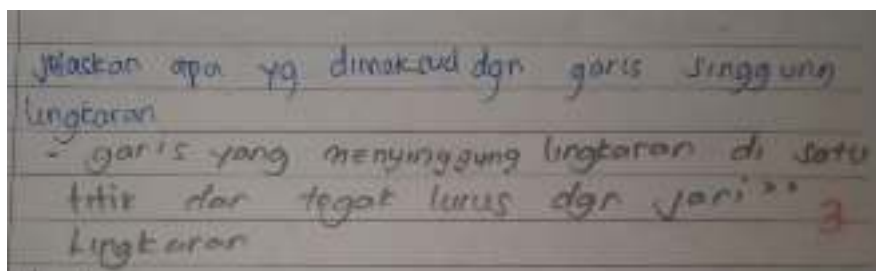 jelaskan apa yg dimaksud dgn garis singgung
lingkaran
- garis yang menyinggung lingkaran di satu
titik dan tegak lurus dgn jari">>
Lingkaran
3